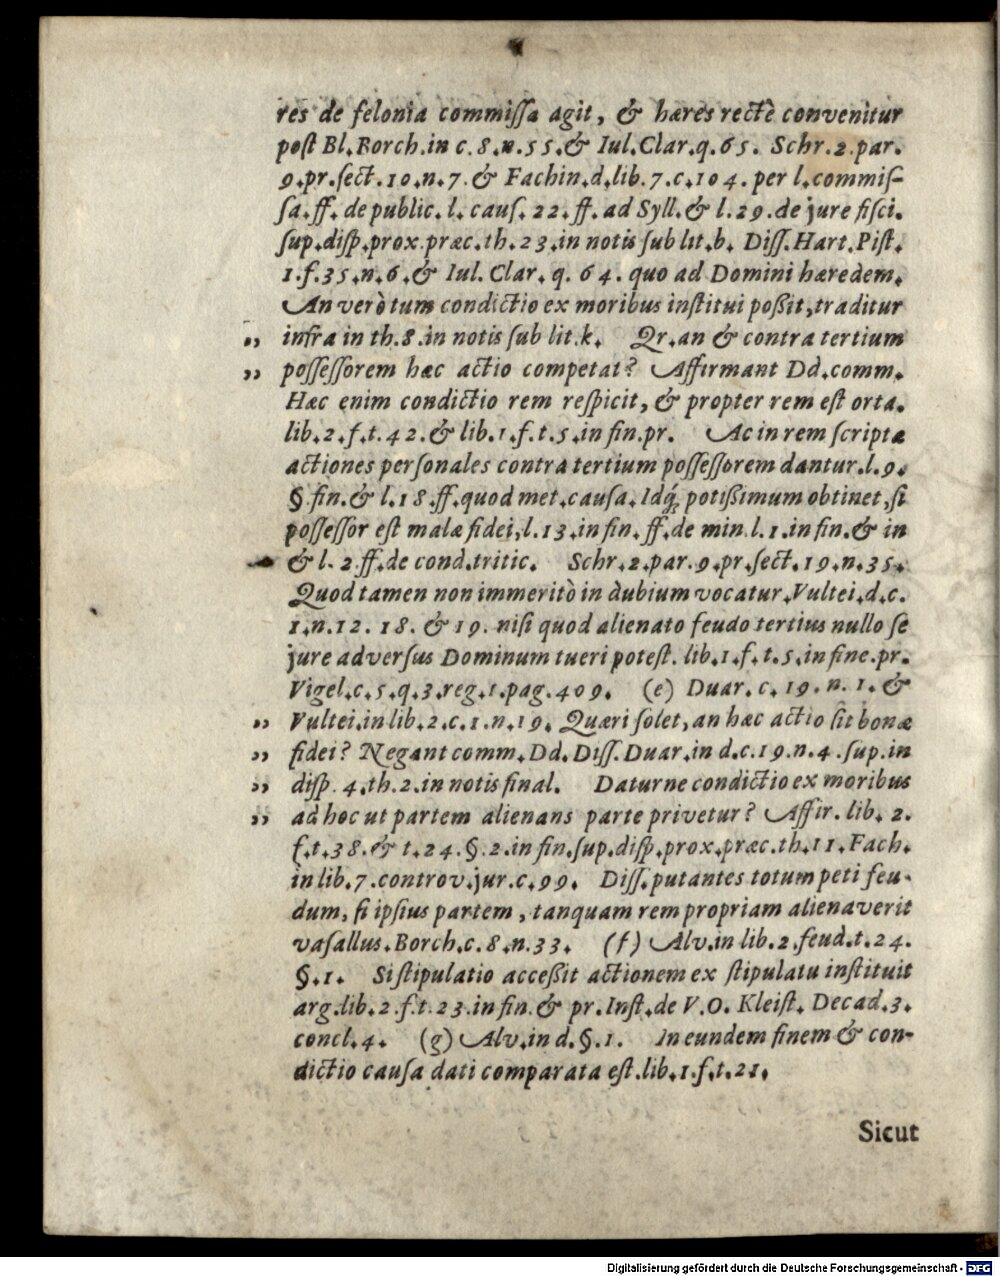 res de felonia commiſſa agit, & hæres rectè convenitur
poſt Bl. Borch. in c. 8. n. 55. & Iul. Clar. q. 65. Schr. 2. par.
9. pr. ſect. 10. n. 7. & Fachin. d. lib. 7. c. 104. per l. commiſ-
ſa. ff. de public. l. cauſ. 22. ff. ad Syll. & l. 29. de jure fiſci.
ſup. diſp. prox. præc. th. 23. in notis ſub lit. b. Diſſ. Hart. Piſt.
1. f. 35. n. 6. & Iul. Clar. q. 64. quo ad Domini hæredem.
An verò tum condictio ex moribus inſtitui poßit, traditur
„ infra in th. 8. in notis ſub lit. k. Qr. an & contra tertium
„ poſſeſſorem hæc actio competat? Affirmant Dd. comm.
Hæc enim condictio rem reſpicit, & propter rem eſt orta.
lib. 2. f. t. 42. & lib. 1. f. t. 5. in fin. pr. Ac in rem ſcriptæ
actiones perſonales contra tertium poſſeſſorem dantur. l. 9.
§. fin. & l. 18. ff. quod met. cauſa. Idq́; potißimum obtinet, ſi
poſſeſſor eſt malæ fidei, l. 13. in fin. ff. de min. l. 1. in fin. & in
& l. 2. ff. de cond. tritic. Schr. 2. par. 9. pr. ſect. 19. n. 35.
Quod tamen non immeritò in dubium vocatur. Vultei. d. c.
1. n. 12. 18. & 19. niſi quod alienato feudo tertius nullo ſe
jure adverſus Dominum tueri poteſt. lib. 1. f. t. 5. in fine. pr.
Vigel. c. 5. q. 3. reg. 1. pag. 409. (e) Duar. c. 19. n. 1. &
„ Vultei. in lib. 2. c. 1. n. 19. Quæri ſolet, an hæc actio ſit bonæ
„ fidei? Negant comm. Dd. Diſſ. Duar. in d. c. 19. n. 4. ſup. in
„ diſp. 4. th. 2. in notis final. Daturne condictio ex moribus
„ ad hoc ut partem alienans parte privetur? Affir. lib. 2.
f. t. 38. & t. 24. §. 2. in fin. ſup. diſp. prox. præc. th. 11. Fach.
in lib. 7. controv. jur. c. 99. Diſſ. putantes totum peti feu-
dum, ſi ipſius partem, tanquam rem propriam alienaverit
vaſallus. Borch. c. 8. n. 33. (f) Alv. in lib. 2. feud. t. 24.
§. 1. Si ſtipulatio acceßit actionem ex ſtipulatu inſtituit
arg. lib. 2. f. t. 23. in fin. & pr. Inſt. de V. O. Kleiſt. Decad. 3.
concl. 4. (g) Alv. in d. §. 1. In eundem finem & con-
dictio cauſa dati comparata eſt. lib. 1. f. t. 21.
Sicut
Digitalisierung gefördert durch die Deutsche Forschungsgemeinschaft - DFG